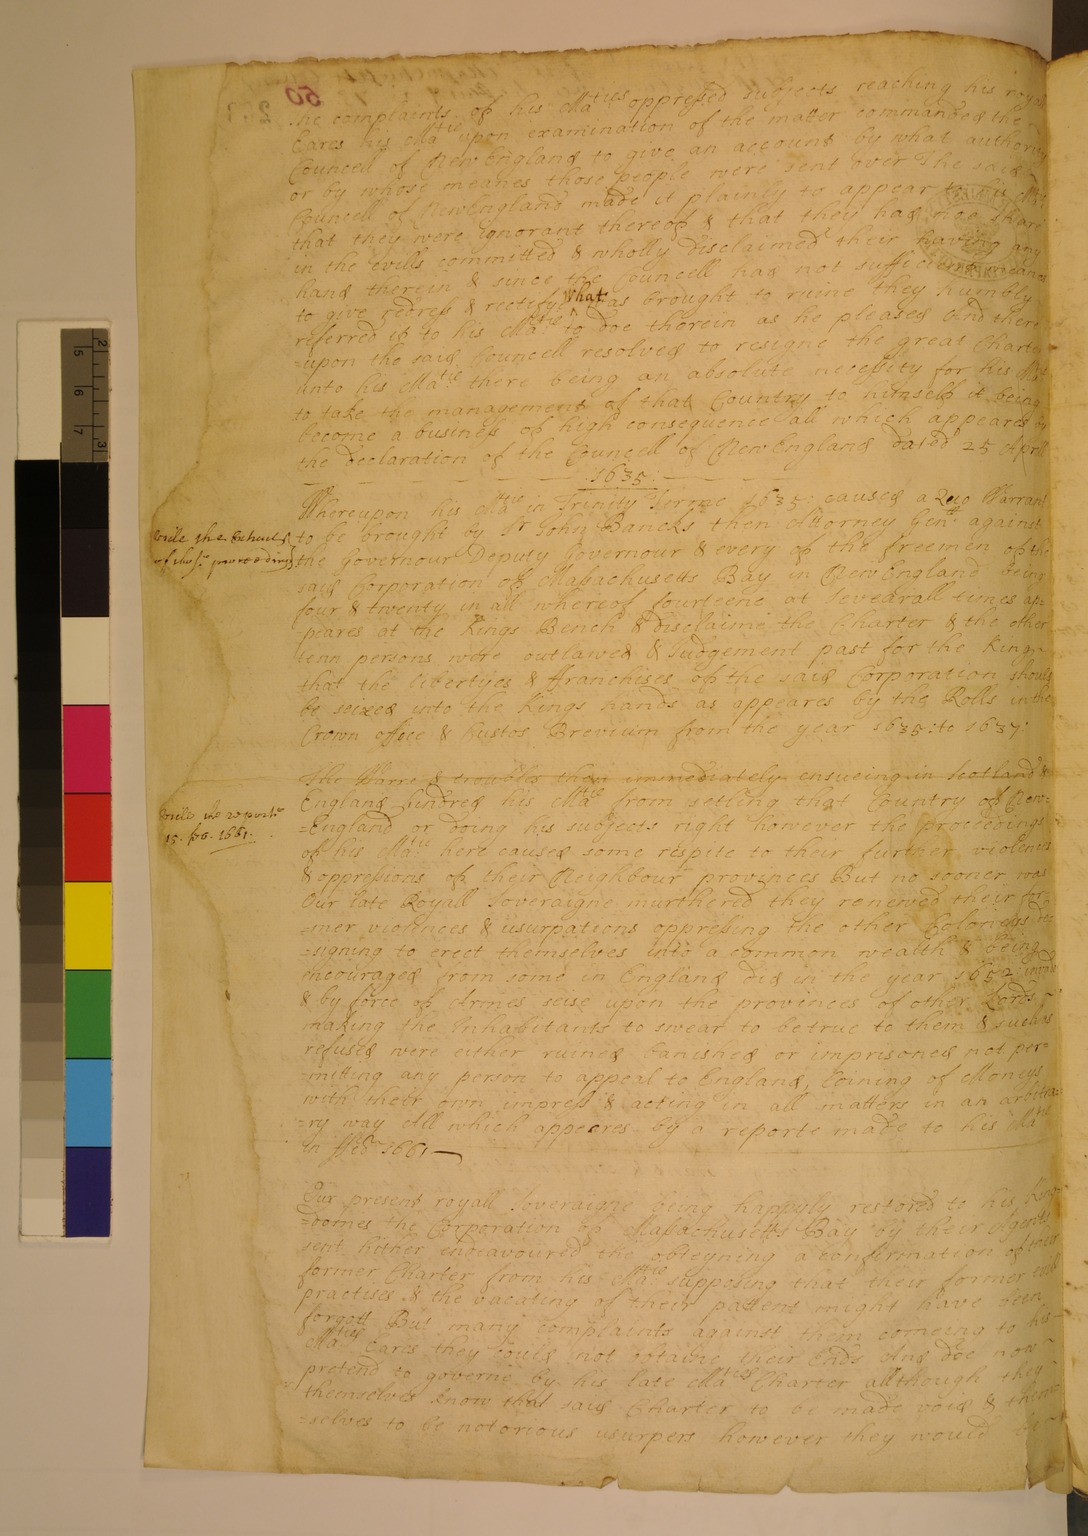 the complaints of his Ma:ties oppressed subjects reaching his royall
Eares his Ma:tie upon examination of the matter commanded the
Councell of NewEngland to give an account by what authority
or by whose meanes those people were sent over The said
Councell of NewEngland made it plainly to appear to his
that they were ignorant thereof & that they had noe share
in the evills committed & wholly disclaimed their having any
hand therein & since the Councell had not sufficient meanes
to give redress & rectify what was brought to ruine they humbly
referred it to his Ma:tie to doe therein as he pleased And there
=upon the said Councell resolved to resigne the great Charter
unto his Ma:tie there being an absolute necessity for his Ma:tie
to take the management of that Country to himself it being
become a business of high consequence all which appeares by
the declaration of the Councell of NewEngland dated 25 Aprill
1635:
Whereupon his Ma:tie in Trinity Terme 1635: caused a Quo Warranto
to be brought by Sr John Bancks then Attorney Gen:ll against
vide the
of proceedings
the Governour Deputy Governour & every of the freemen of the
said Corporation of Massachusetts Bay in NewEngland being
four & twenty in all whereof fourteene at severall times ap=
=peares at the Kings Bench & disclaime the Charter & the other
tenn persons were outlawed & Judgement past for the King
that the libertyes & ffranchises of the said Corporation should
be seized into the Kings hands as appeares by the Rolls in the
Crown office & Custos Brevium from the year 1635: to 1637:
The Warre & troubles then immediately ensueing in Scotland &
England hindred his Ma:tie from setling that Country of New=
vide the report
15. feb. 1661.
=England or doing his subjects right however the proceedings
of his Ma:tie here caused some respite to their further violences
& oppressions of their Neighbour provinces But no sooner was
Our late Royall Soveraigne murthered they renewed their for=
=mer violences & usurpations oppressing the other Colonies de=
=signing to erect themselves into a common wealth & being
encouraged from some in England did in the year 1652
& by force of Armes seise upon the provinces of other Lords
making the Inhabitants to swear to be true to them & such as
refused were either ruined banished or imprisoned not per=
=mitting any person to appeal to England, Coining of Moneys
with their own impress & acting in all matters in an arbitra=
=ry way All which appeeres by a reporte made to his Ma:tie
in ffeb: 1661
Our present royall Soveraigne being happyly restored to his King=
=domes the Corporation of Massachusetts Bay by their Agents
sent hither endeavoured the obteyning a confirmation of their
former Charter from his Ma:tie supposing that their former evill
practises & the vacating of their pattent might have been
forgott But many complaints against them comeing to his
Ma:ties Eares they could not obtaine their Ends And doe now
pretend to governe by his late Ma:ties Charter allthough they
themselves know that said Charter to be made void & them=
=selves to be notorious usurpers however they would